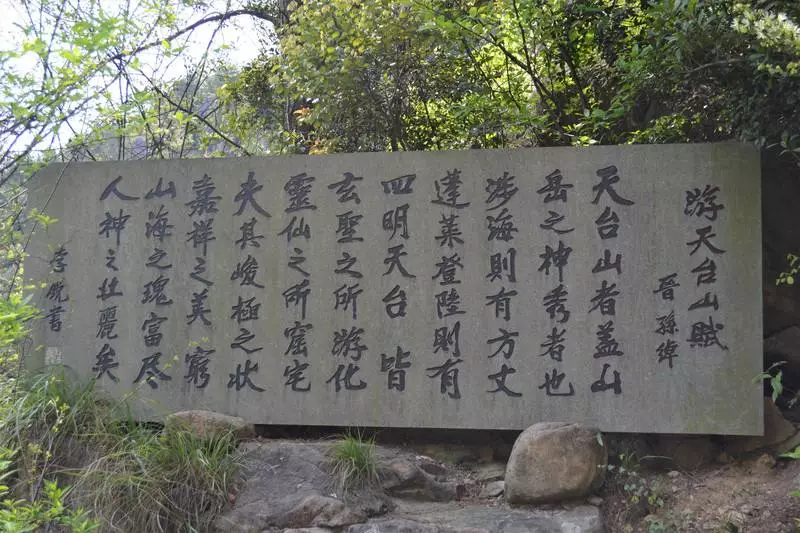 游天台山賦
晋孫綽
天台山者蓋山
岳之神秀者也
涉海則有方丈
蓬萊登陸則有
四明天台皆
玄聖之所游化
靈仙之所窟宅
夫其峻極之状
嘉祥之美窮
山海之瑰富尽
人神之壮麗矣